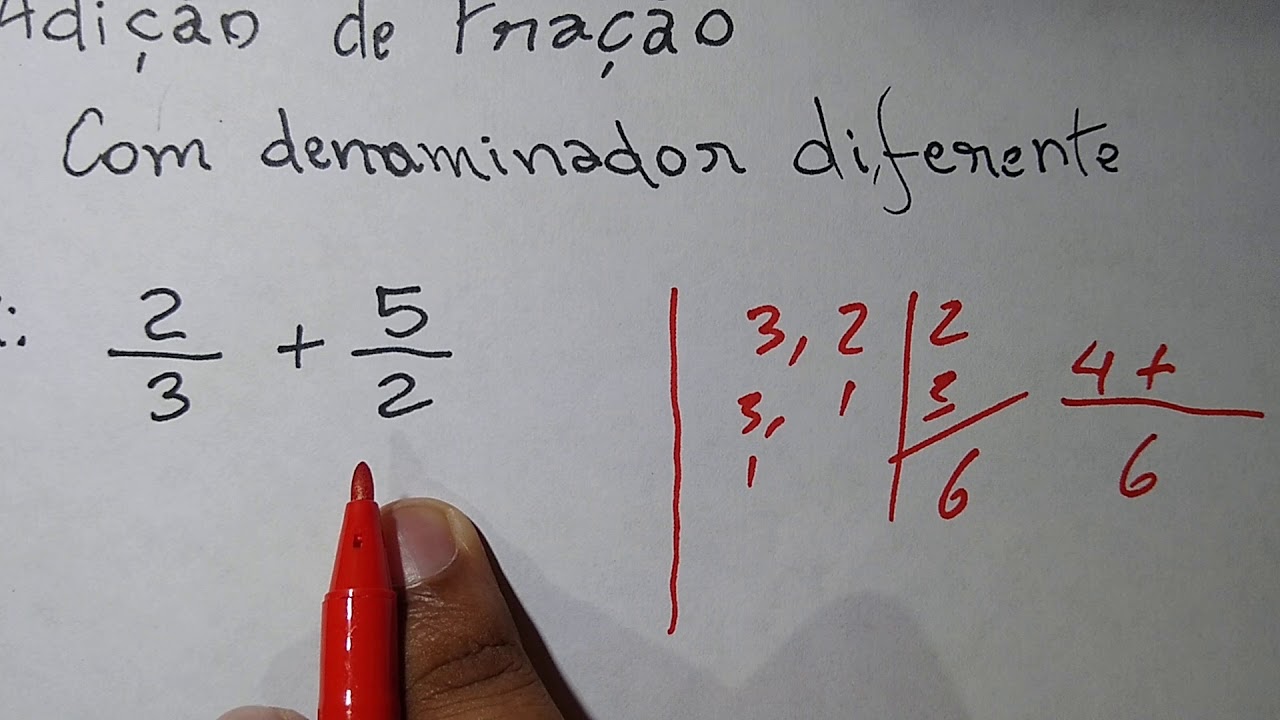 Adição de Fração
Com denominador diferente
: 2/3 + 5/2
3, 2 | 2
3, 1 | 3
1 | 6
4 +
6